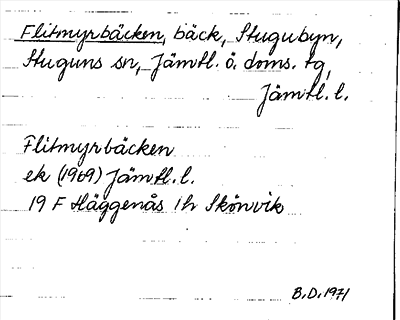 Flitmyrbäcken, bäck, Stugubyn,
Stuguns sn, Jämtl. ö. doms. tg,
Jämtl. l.
Flitmyrbäcken
ek (1969) Jämtl. l.
19 F Häggenås 1h Skönvik
B.D. 1971